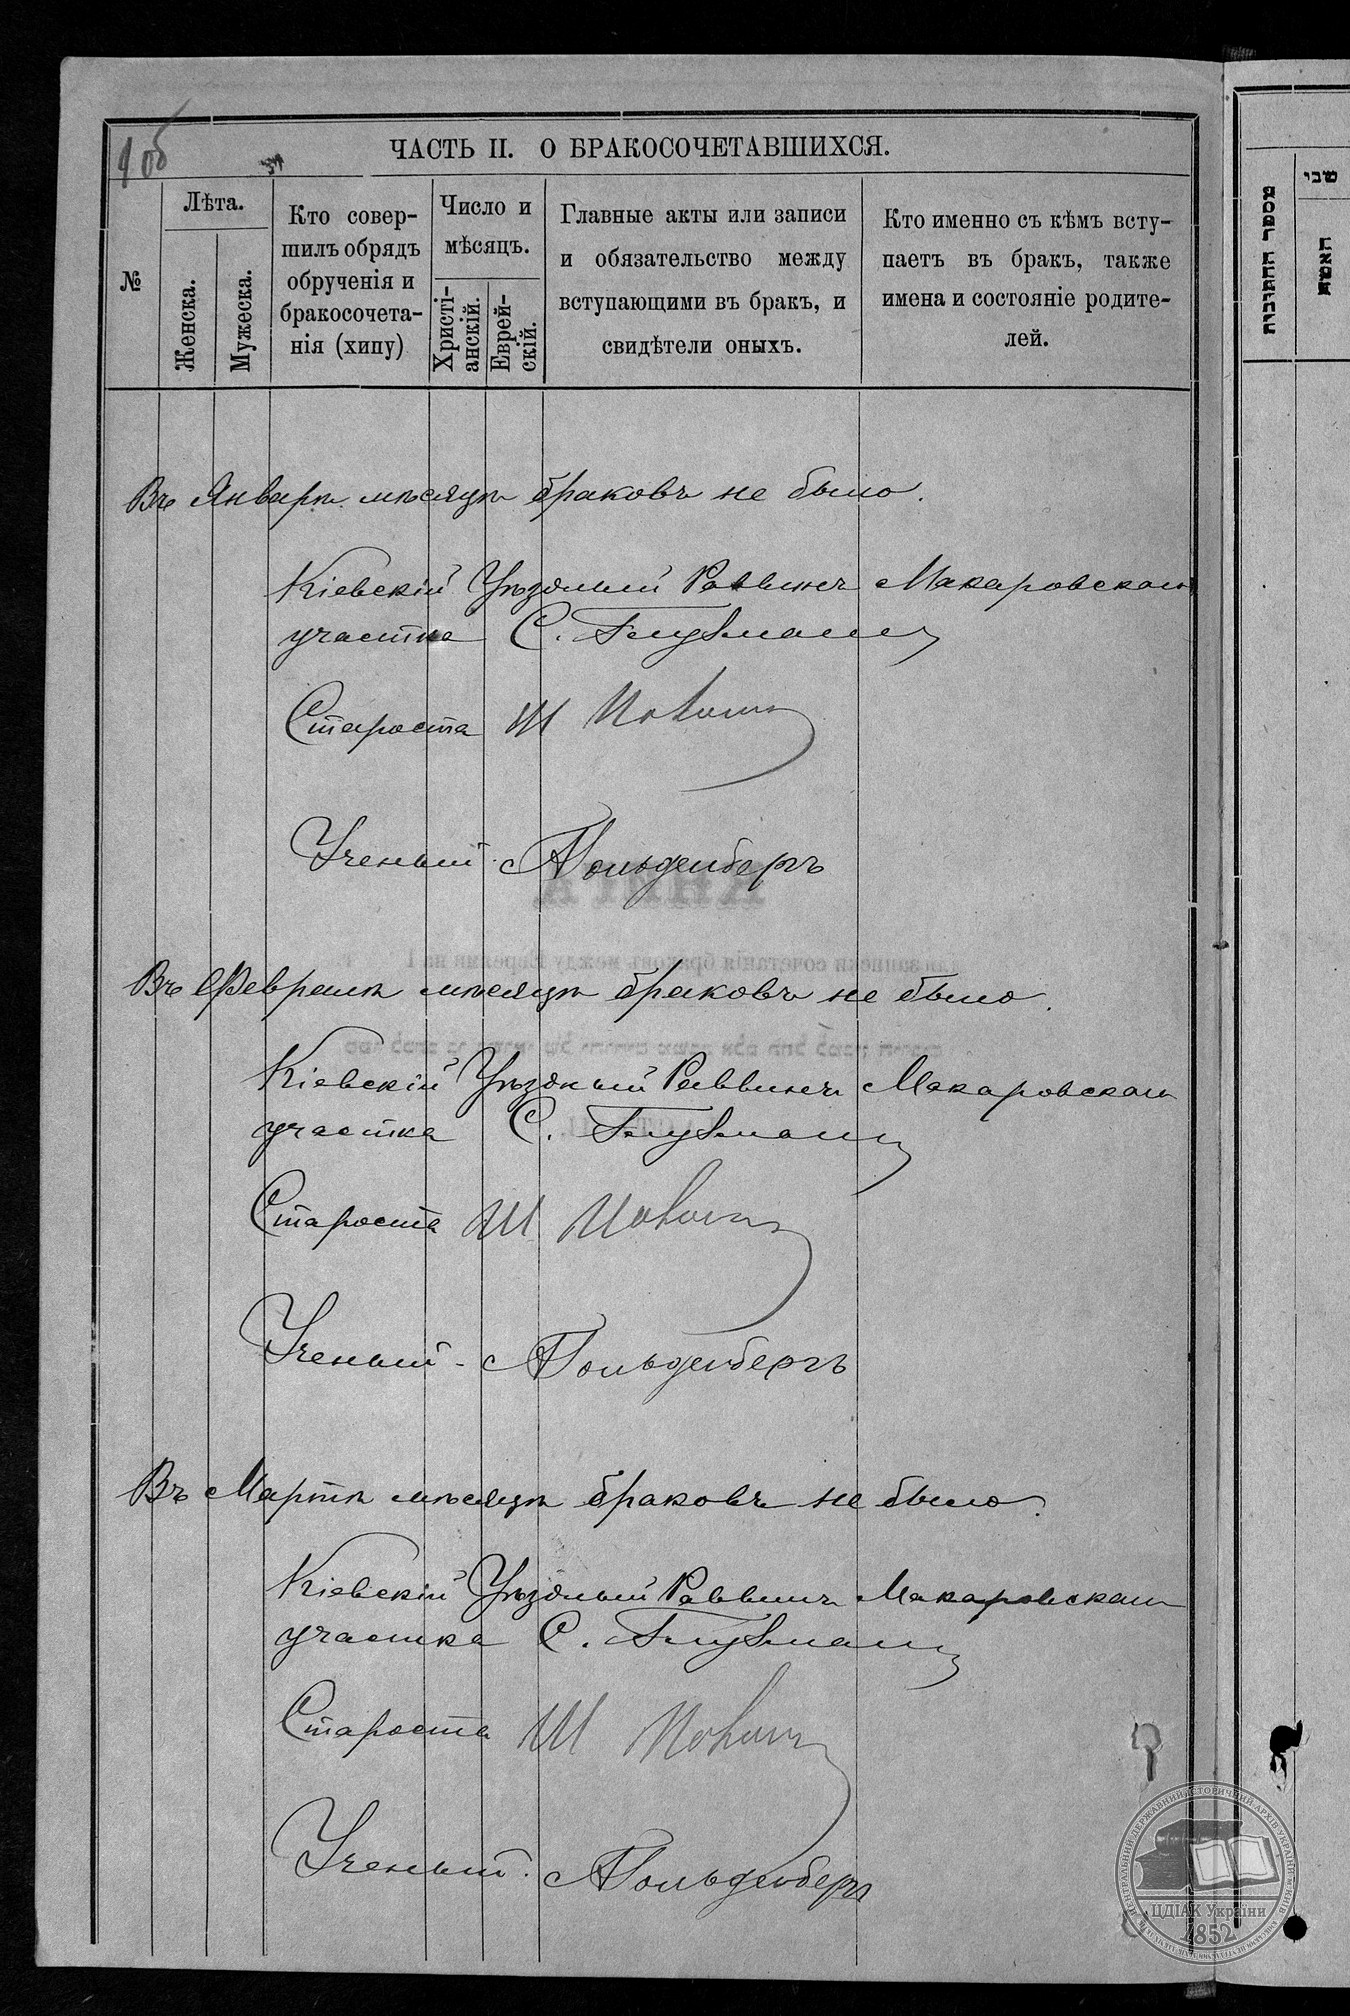 ЧАСТЬ II. О БРАКОСОЧЕТАВШИХСЯ.
№
Лѣта.
Женска.
Мужеска.
Кто совер-
шилъ обрядъ
обрученія и
бракосочета-
нія (хипу)
Число и
мѣсяцъ.
Христі-
анскій.
Еврей-
скій.
Главные акты или записи
и обязательство между
вступающими въ бракъ, и
свидѣтели оныхъ.
Кто именно съ кѣмъ всту-
паетъ въ бракъ, также
имена и состояніе родите-
лей.
Въ Январѣ мѣсяцѣ браковъ не было.
Кіевскій Уѣздный Раввинъ Макаровскаго
участка С. Глузманъ
Староста Ш
Ученый А Гольденбергъ
Въ Февралѣ мѣсяцѣ браковъ не было.
Кіевскій Уѣздный Раввинъ Макаровскаго
участка С. Глузманъ
Староста Ш
Ученый А Гольденбергъ
Въ Мартѣ мѣсяцѣ браковъ не было.
Кіевскій Уѣздный Раввинъ Макаровскаго
участка С. Глузманъ
Староста Ш
Ученый А Гольденбергъ
מספר החתונות
שני
האשה
ЦЕНТРАЛЬНИЙ ДЕРЖАВНИЙ ІСТОРИЧНИЙ АРХІВ УКРАЇНИ
ЦДІАК України
1852